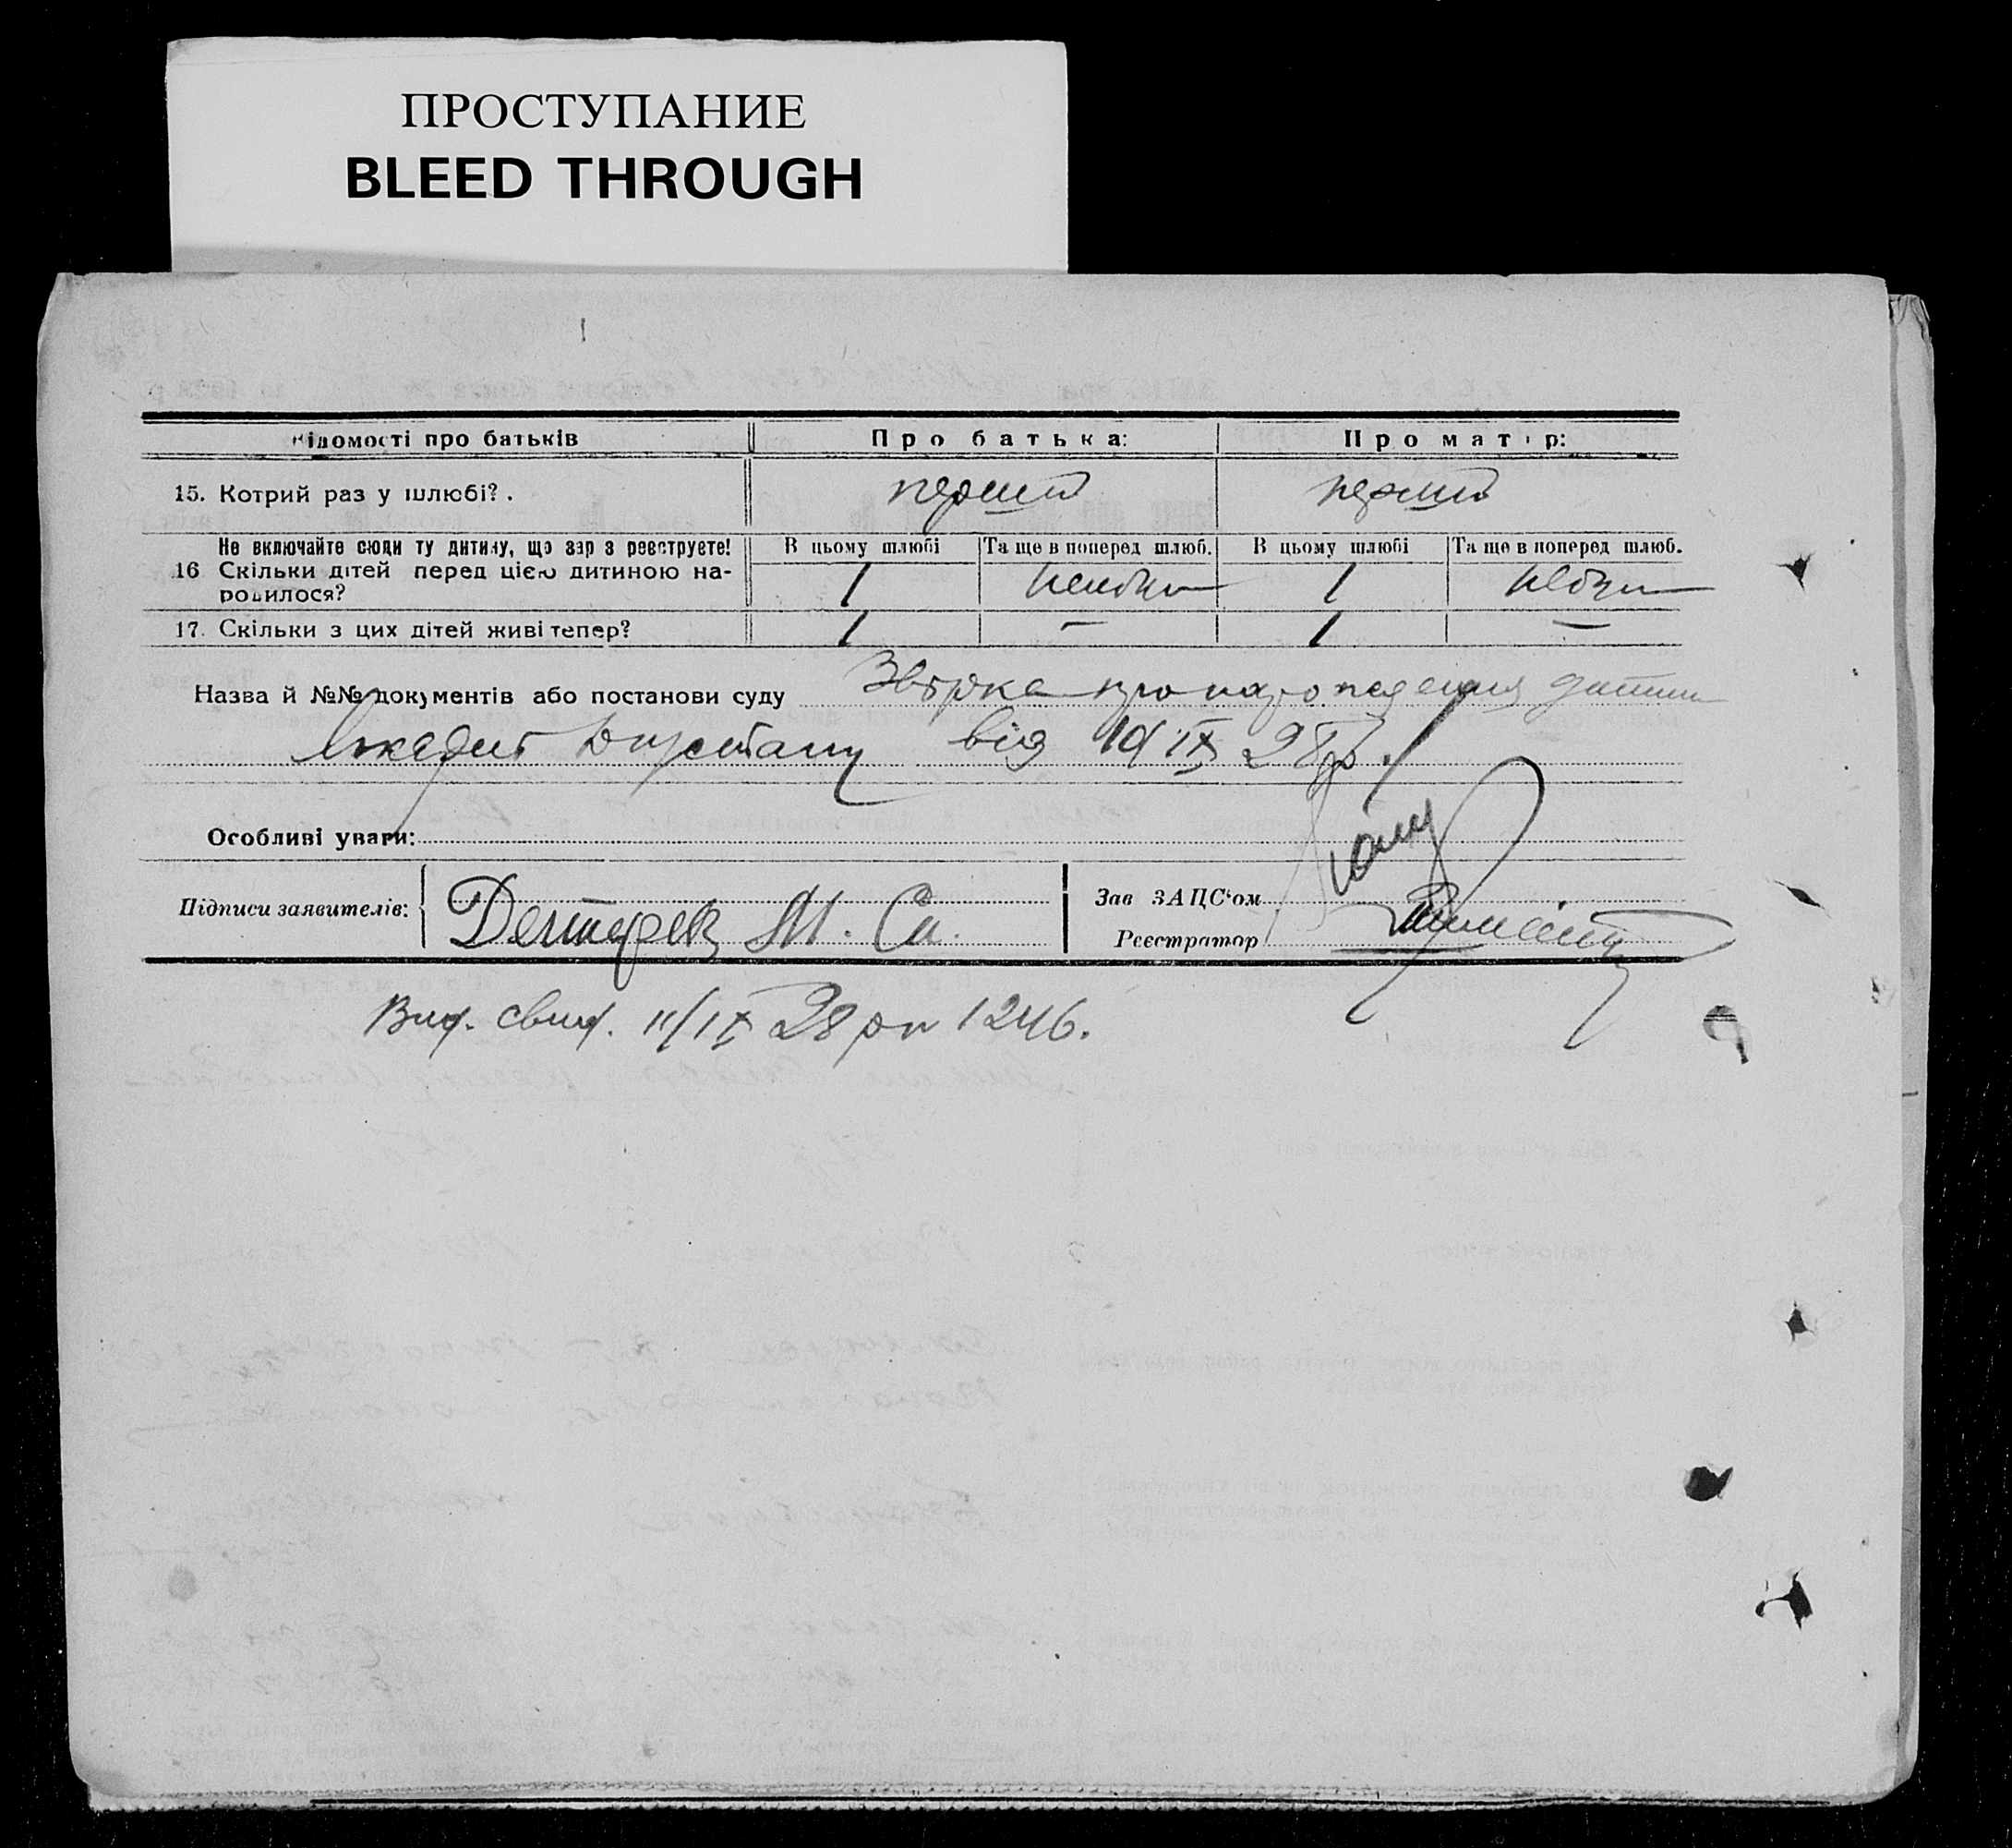 ПРОСТУПАНИЕ
BLEED THROUGH
Відомості про батьків Про батька: Про матір:
15. Котрий раз у шлюбі?. перший перший
Не включайте сюди ту дитину, що зараз реєструєте! В цьому шлюбі Та ще в поперед шлюб. В цьому шлюбі Та ще в поперед шлюб.
16 Скільки дітей перед цією дитиною на-
родилося? 1 1
17. Скільки з цих дітей живі тепер? 1 — 1 —
Назва й №№ документів або постанови суду про народження дитини
від 10/IX 28 р.
Особливі уваги:
Підписи заявителів: М. Зав ЗАЦС'ом
Реєстратор
Вид. свид. 11/IX 28 р № 1246.